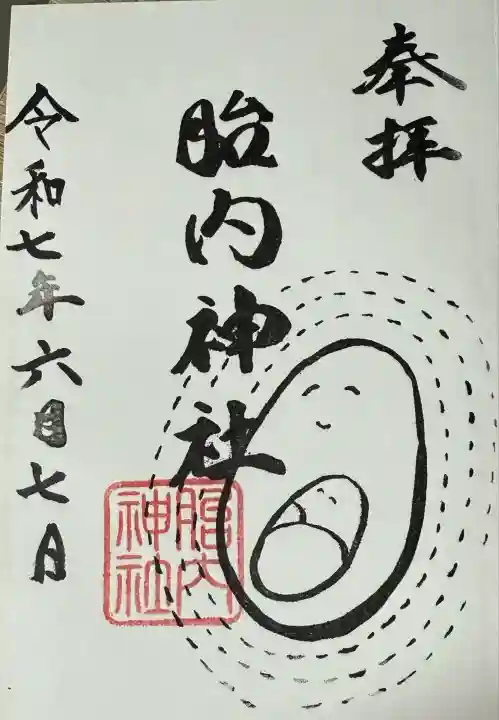 奉拝
胎内神社
胎内神社
令和七年六月七日